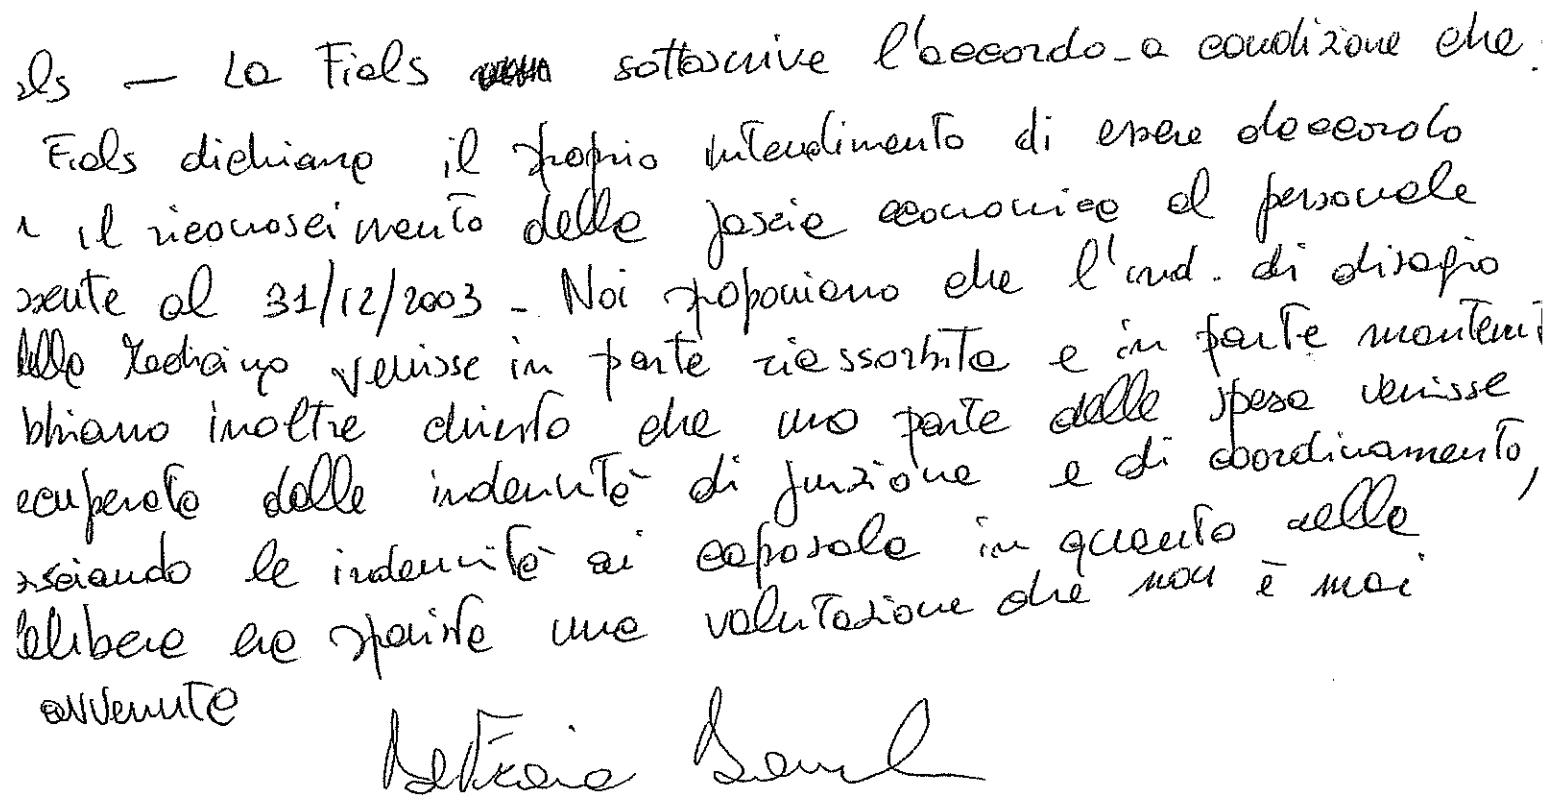 als — La Fials sottoscrive l'accordo - a condizione che.
Fials dichiara il proprio intendimento di essere daccordo
il riconoscimento delle fascie economice al personale
sente al 31/12/2003 - Noi proponiano che l'ind. di disagio
della venisse in parte riassorbita e in parte mantenut
bbiamo inoltre chiesto che una parte della spesa venisse
ecuperata dalle indennità di funzione e di coordinamento,
asciando le indennità ai caposala in quanto nella
elibera era sparita una valutazione che non è mai
avvenuta